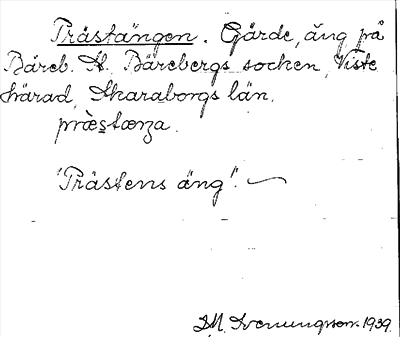 Prästängen. Gärde, äng på
Bäreb. St. Bärebergs socken, Viste
härad, Skaraborgs län.
præ̀stæŋa.
"Prästens äng".
1939.